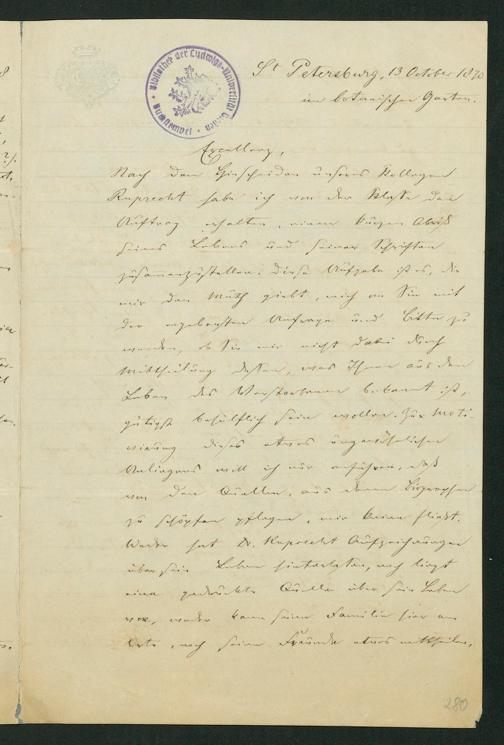 Bibliothek der Ludwigs-Universität Giessen
St Petersburg, 13 October 1870
im botanischen Garten.
Excellenz,
Nach dem Hinscheiden unseres Kollegen
Ruprecht habe ich von der Klasse den
Auftrag erhalten, einen kurzen Abriß
seines Lebens und seiner Schriften
zusammenzustellen. Diese Aufgabe ist es, die
mir den Muth giebt, mich an Sie mit
der ergebensten Anfrage und Bitte zu
wenden, ob Sie mir nicht dabei durch
Mittheilung dessen, was Ihnen aus dem
Leben des Verstorbenen bekannt ist,
gütigst behülflich sein wollen. Zur Moti
virung dieses etwas ungewöhnlichen
Anliegens will ich nur anführen, daß
von den Quellen, aus denen Biographen
zu schöpfen pflegen, mir keine fließt.
Weder hat Dr. Ruprecht Aufzeichnungen
über sein Leben hinterlassen, noch liegt
eine gedruckte Quelle über sein Leben
vor, weder kann seine Familie hier am
Orte, noch seine Freunde etwas mittheilen,
280